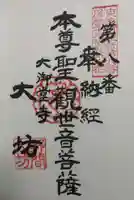 第八番
奉納経
本尊聖観世音菩薩
大御堂寺
大坊